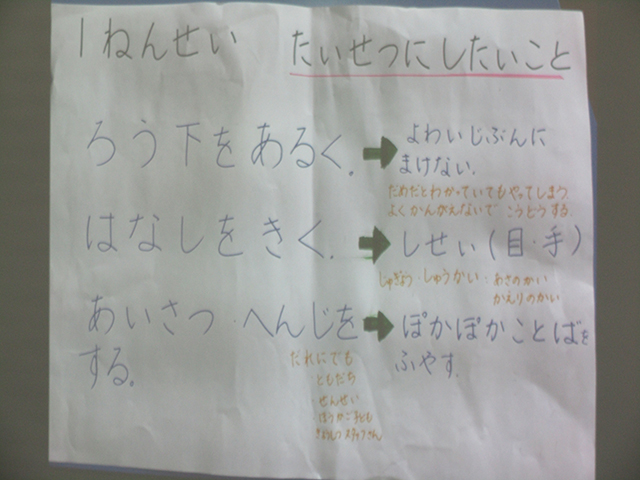 1ねんせい たいせつにしたいこと
ろう下をあるく. ➡ よわいじぶんに
まけない.
だめだとわかっていてもやってしまう
よくかんがえないで こうどうする.
はなしをきく. ➡ しせい(目・手)
じゅぎょう・しゅうかい・あさのかい
かえりのかい
あいさつ・へんじを ➡ ぽかぽかことばを
する. ふやす.
だれにでも
ともだち
・せんせい
・ほうかご子ども
きょうしつスタッフさん